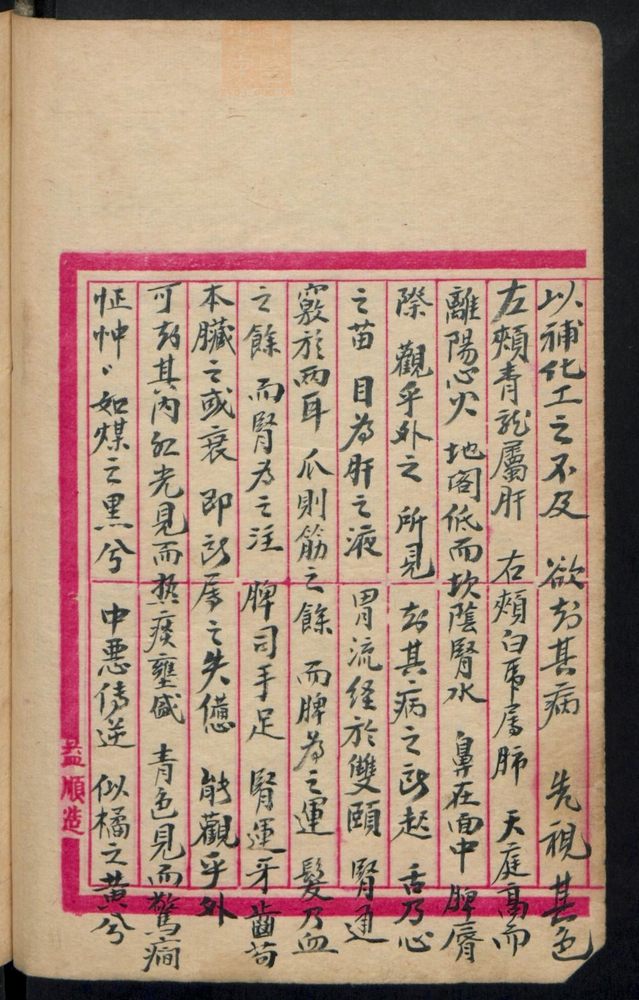 以補化工之不及 欲知其病 先視其色
左頰青龍屬肝 右頰白虎属肺 天庭高而
離陽心火 地閣低而坎陰腎水 鼻在面中 脾唇
際 觀乎外之所見 知其病之所起 舌乃心
之苗 目為肝之液 胃流经於雙頤 腎通
竅於兩耳 爪則筋之餘 而脾為之運 髮乃血
之餘 而腎為之注 脾司手足 腎運牙齒 苟
本臟之或衰 即所属之失德 能觀乎外
可知其内 红光見而热痰壅盛 青色見而驚癇
怔忡〃如煤之黑兮 中悪傳逆 似橘之黄兮
益順造